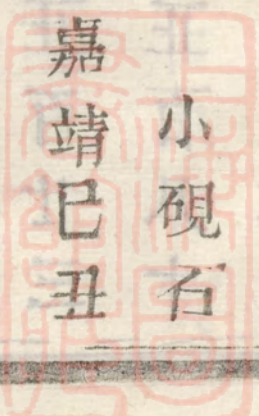 小硯石
嘉靖已丑